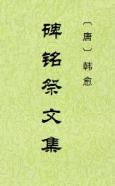 碑铭祭文集
〔唐〕韩愈